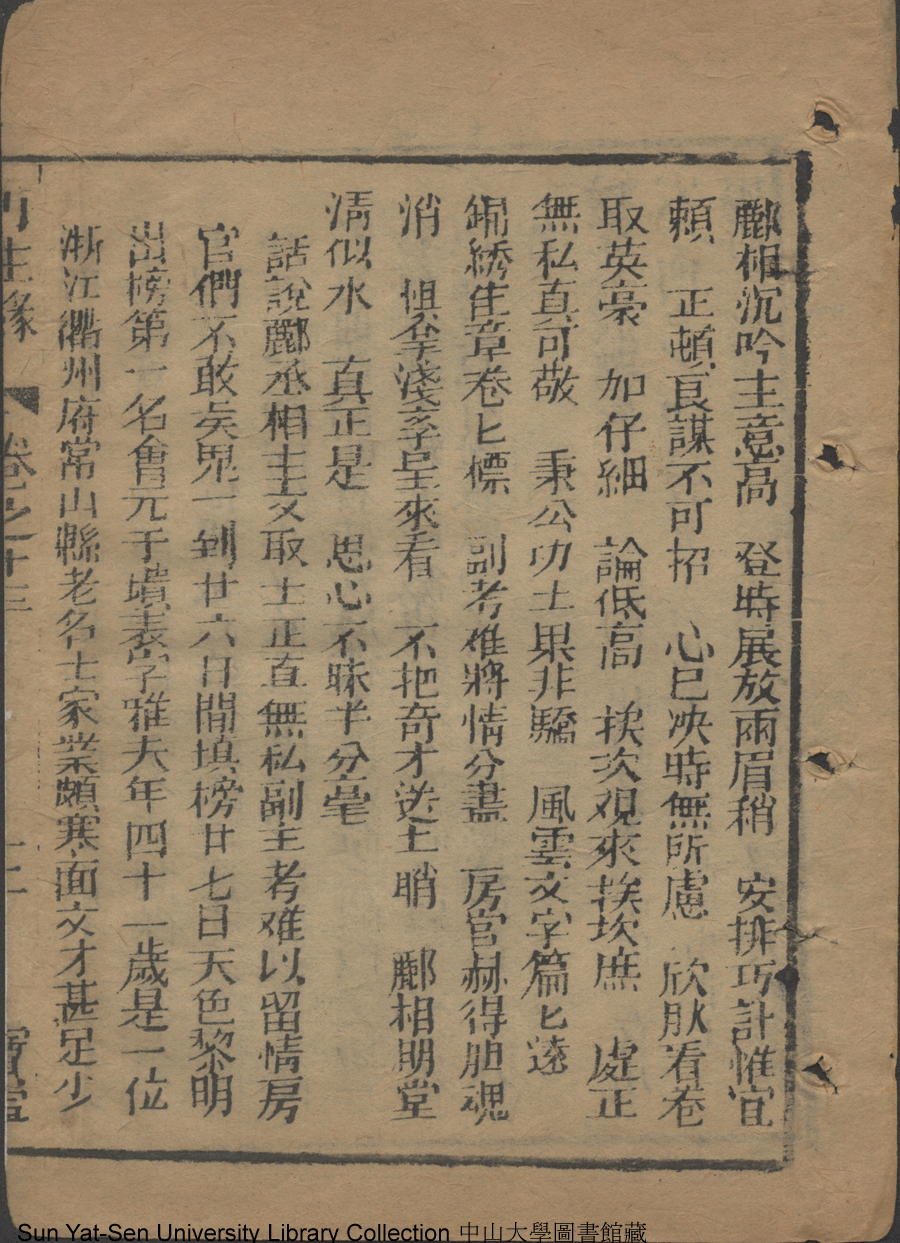 酈相沉吟主意高　登時展放兩眉稍　安排巧計惟宜
頼　正頓良謀不可招　心巳决時無所慮　欣肰看卷
取英豪　加仔細　論低高　挨次观來挨坎庶　處正
無私真可敬　秉公功土果非驕　風雲文字篇匕遠
錦綉隹章卷匕標　副考难將情分盡　房官赫得胆魂
消　惧　淺　呈來看　不把奇才送上睄　酈相明堂
清似水　真正是　思心不昧半分毫
話說酈丞相主文取士正直無私副主考难以留情房
官們不敢矣鬼一到廿六日間填榜廿七日天色黎明
出榜第一名會元于璝表字雅夫年四十一歲是一位
浙江衢州府常山縣老名士家業頗寒面文才甚足少
生緣　卷之十三
Sun Yat-Sen University Library Collection 中山大學圖書館藏